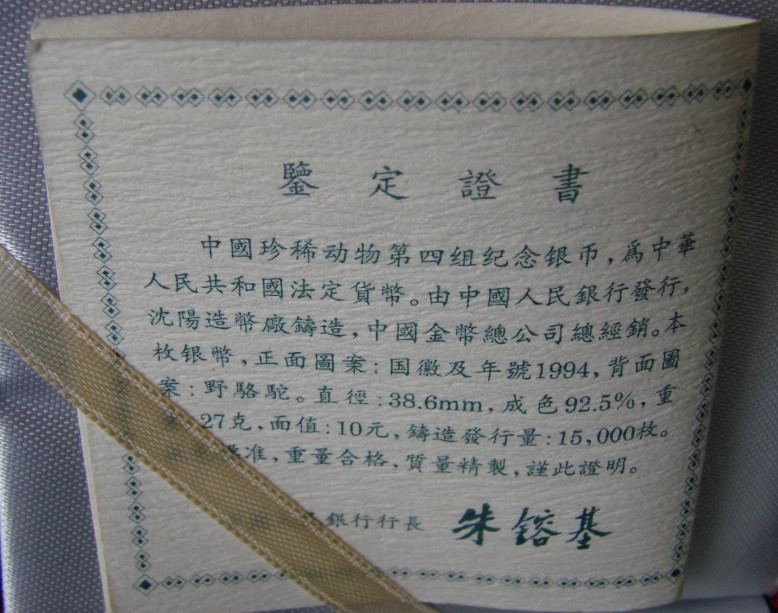 鑒定證書
中國珍稀动物第四组纪念银币，爲中華
人民共和國法定貨幣。由中國人民銀行發行，
沈陽造幣廠鑄造，中國金幣總公司總經銷。本
枚银幣，正面圖案：国徽及年號1994，背面圖
案：野駱駝。直徑：38.6mm，成色92.5%，重
27克，面值：10元，鑄造發行量：15,000枚。
准，重量合格，質量精製，謹此證明。
銀行行長 朱鎔基